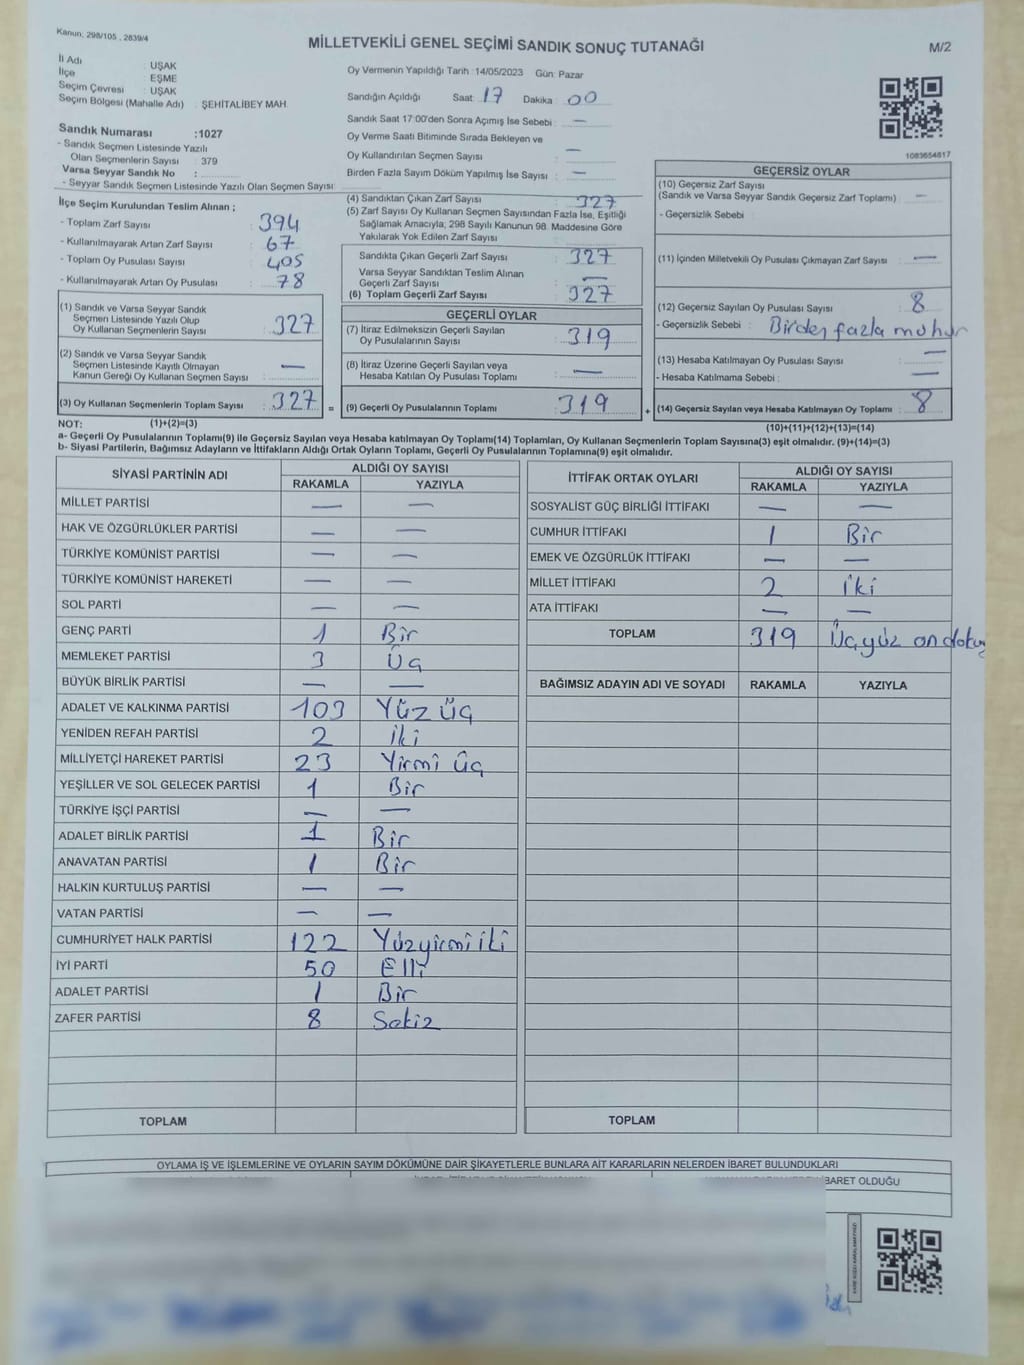 Kanun: 298/105 , 2839/4
MİLLETVEKİLİ GENEL SEÇİMİ SANDIK SONUÇ TUTANAĞI
M/2
İl Adı UŞAK
İlçe EŞME
Seçim Çevresi UŞAK
Seçim Bölgesi (Mahalle Adı) : ŞEHİTALİBEY MAH.
Sandık Numarası :1027
- Sandık Seçmen Listesinde Yazılı
Olan Seçmenlerin Sayısı : 379
Varsa Seyyar Sandık No :
- Seyyar Sandık Seçmen Listesinde Yazılı Olan Seçmen Sayısı
Oy Vermenin Yapıldığı Tarih :14/05/2023 Gün: Pazar
Sandığın Açıldığı Saat 17 Dakika 00
Sandık Saat 17:00'den Sonra Açımış İse Sebebi : —
Oy Verme Saati Bitiminde Sırada Bekleyen ve
Oy Kullandırılan Seçmen Sayısı —
Birden Fazla Sayım Döküm Yapılmış İse Sayısı : —
1083654817
İlçe Seçim Kurulundan Teslim Alınan ;
- Toplam Zarf Sayısı : 394
- Kullanılmayarak Artan Zarf Sayısı : 67
- Toplam Oy Pusulası Sayısı : 405
- Kullanılmayarak Artan Oy Pusulası : 78
(1) Sandık ve Varsa Seyyar Sandık
Seçmen Listesinde Yazılı Olup
Oy Kullanan Seçmenlerin Sayısı : 327
(2) Sandık ve Varsa Seyyar Sandık
Seçmen Listesinde Kayıtlı Olmayan
Kanun Gereği Oy Kullanan Seçmen Sayısı —
(3) Oy Kullanan Seçmenlerin Toplam Sayısı : 327 =
(4) Sandıktan Çıkan Zarf Sayısı : 327
(5) Zarf Sayısı Oy Kullanan Seçmen Sayısından Fazla İse, Eşitliği
Sağlamak Amacıyla; 298 Sayılı Kanunun 98. Maddesine Göre
Yakılarak Yok Edilen Zarf Sayısı
Sandıkta Çıkan Geçerli Zarf Sayısı : 327
Varsa Seyyar Sandıktan Teslim Alınan
Geçerli Zarf Sayısı —
(6) Toplam Geçerli Zarf Sayısı : 327
GEÇERLİ OYLAR
(7) İtiraz Edilmeksizin Geçerli Sayılan
Oy Pusulalarının Sayısı 319
(8) İtiraz Üzerine Geçerli Sayılan veya
Hesaba Katılan Oy Pusulası Toplamı —
(9) Geçerli Oy Pusulalarının Toplamı 319 +
GEÇERSİZ OYLAR
(10) Geçersiz Zarf Sayısı
(Sandık ve Varsa Seyyar Sandık Geçersiz Zarf Toplamı) : —
- Geçersizlik Sebebi :
(11) İçinden Milletvekili Oy Pusulası Çıkmayan Zarf Sayısı : —
(12) Geçersiz Sayılan Oy Pusulası Sayısı : 8
- Geçersizlik Sebebi : Birden fazla mühür
(13) Hesaba Katılmayan Oy Pusulası Sayısı : —
- Hesaba Katılmama Sebebi : —
(14) Geçersiz Sayılan veya Hesaba Katılmayan Oy Toplamı : 8
NOT: (1)+(2)=(3) (10)+(11)+(12)+(13)=(14)
a- Geçerli Oy Pusulalarının Toplamı(9) ile Geçersiz Sayılan veya Hesaba katılmayan Oy Toplamı(14) Toplamları, Oy Kullanan Seçmenlerin Toplam Sayısına(3) eşit olmalıdır. (9)+(14)=(3)
b- Siyasi Partilerin, Bağımsız Adayların ve İttifakların Aldığı Ortak Oyların Toplamı, Geçerli Oy Pusulalarının Toplamına(9) eşit olmalıdır.
SİYASİ PARTİNİN ADI ALDIĞI OY SAYISI
RAKAMLA YAZIYLA
MİLLET PARTİSİ — —
HAK VE ÖZGÜRLÜKLER PARTİSİ — —
TÜRKİYE KOMÜNİST PARTİSİ — —
TÜRKİYE KOMÜNİST HAREKETİ — —
SOL PARTİ — —
GENÇ PARTİ 1 Bir
MEMLEKET PARTİSİ 3 Üç
BÜYÜK BİRLİK PARTİSİ — —
ADALET VE KALKINMA PARTİSİ 103 Yüz üç
YENİDEN REFAH PARTİSİ 2 İki
MİLLİYETÇİ HAREKET PARTİSİ 23 Yirmi üç
YEŞİLLER VE SOL GELECEK PARTİSİ 1 Bir
TÜRKİYE İŞÇİ PARTİSİ — —
ADALET BİRLİK PARTİSİ 1 Bir
ANAVATAN PARTİSİ 1 Bir
HALKIN KURTULUŞ PARTİSİ — —
VATAN PARTİSİ — —
CUMHURİYET HALK PARTİSİ 122 Yüzyirmi iki
İYİ PARTİ 50 Elli
ADALET PARTİSİ 1 Bir
ZAFER PARTİSİ 8 Sekiz
TOPLAM
İTTİFAK ORTAK OYLARI ALDIĞI OY SAYISI
RAKAMLA YAZIYLA
SOSYALİST GÜÇ BİRLİĞİ İTTİFAKI — —
CUMHUR İTTİFAKI 1 Bir
EMEK VE ÖZGÜRLÜK İTTİFAKI — —
MİLLET İTTİFAKI 2 İki
ATA İTTİFAKI — —
TOPLAM 319 Üçyüz ondokuz
BAĞIMSIZ ADAYIN ADI VE SOYADI RAKAMLA YAZIYLA
TOPLAM
OYLAMA İŞ VE İŞLEMLERİNE VE OYLARIN SAYIM DÖKÜMÜNE DAİR ŞİKAYETLERLE BUNLARA AİT KARARLARIN NELERDEN İBARET BULUNDUKLARI
İBARET OLDUĞU